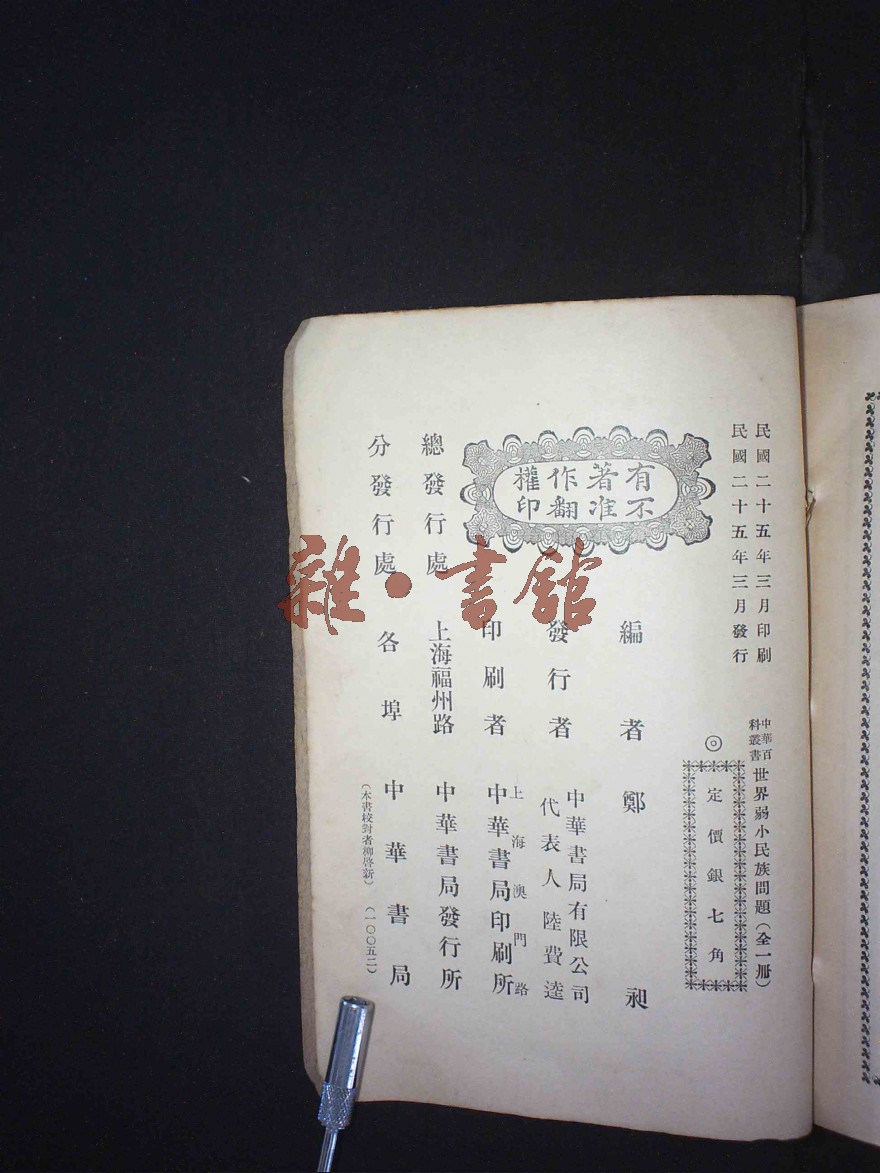 民國二十五年三月印刷
民國二十五年三月發行
中華百科叢書 世界弱小民族問題（全一册）
◎定價銀七角
有著作權
不准翻印
編者 鄭昶
發行者 中華書局有限公司
代表人 陸費逵
印刷者 上海澳門路
中華書局印刷所
總發行處 上海福州路 中華書局發行所
分發行處 各埠 中華書局
（本書校對者柳啓新）（一〇〇五二）
雜·書館